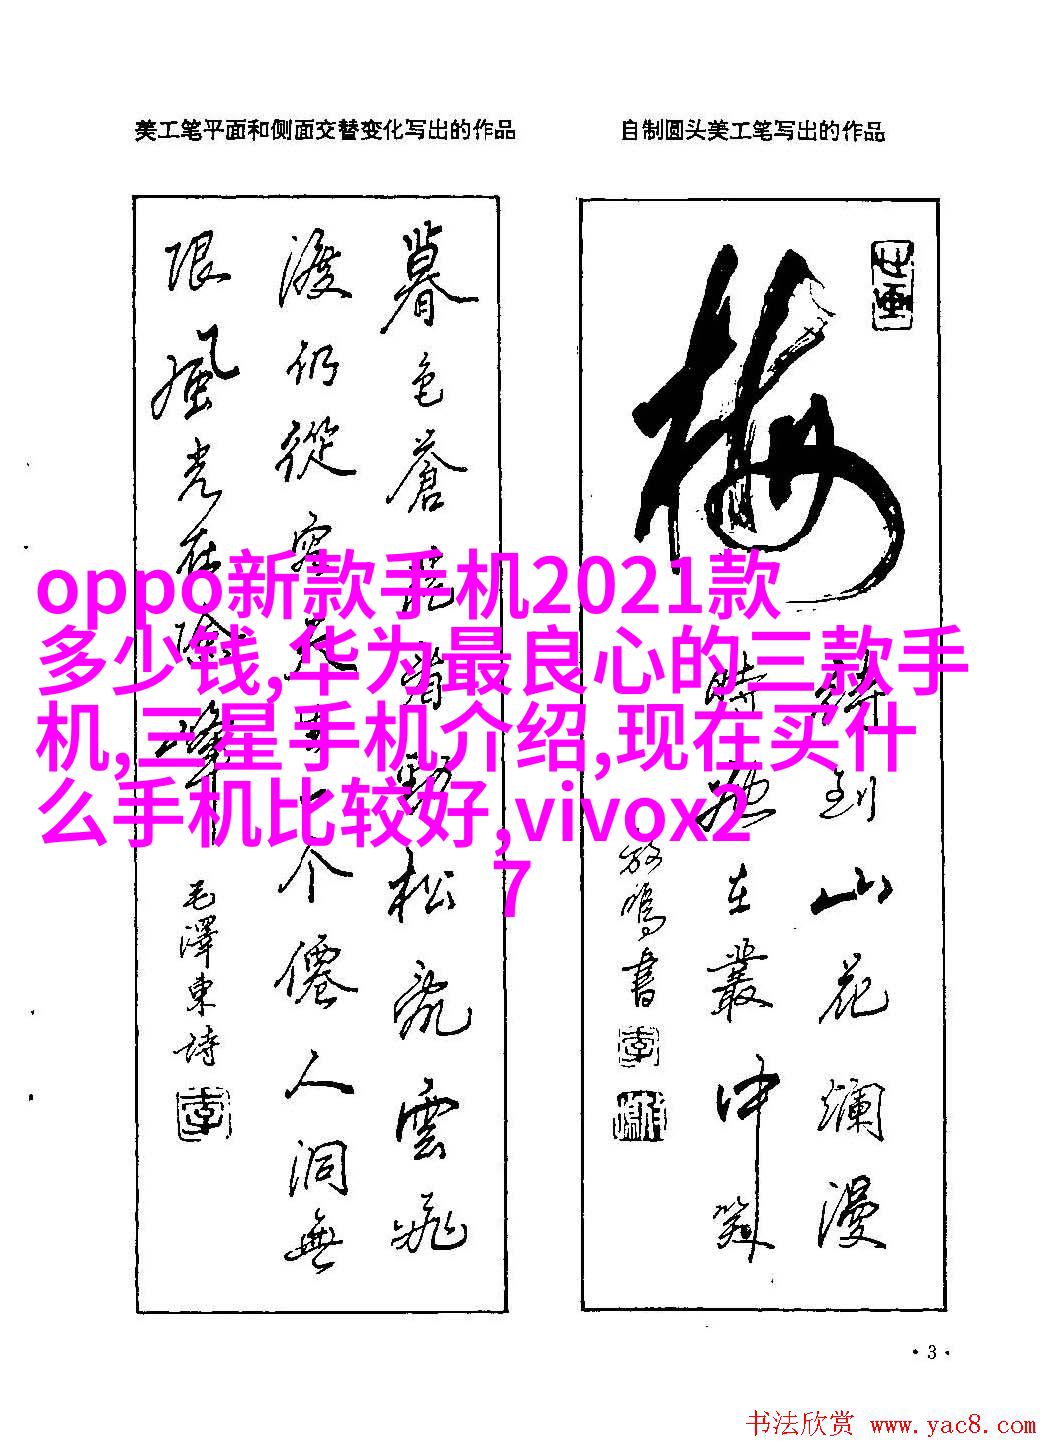 美工笔平面和侧面交替变化写出的作品
自制圆头美工笔写出的作品
暮色蒼茫看勁松亂雲飛
渡仍從容天生一个僊人洞無
限風光在險峰
毛澤東詩
梅
待到山花爛漫
時她在叢中笑
放鳴書
oppo新款手机2021款
多少钱,华为最良心的三款手
机,三星手机介绍,现在买什
么手机比较好,vivox2
7
·3·
书法欣赏 www.yac8.com